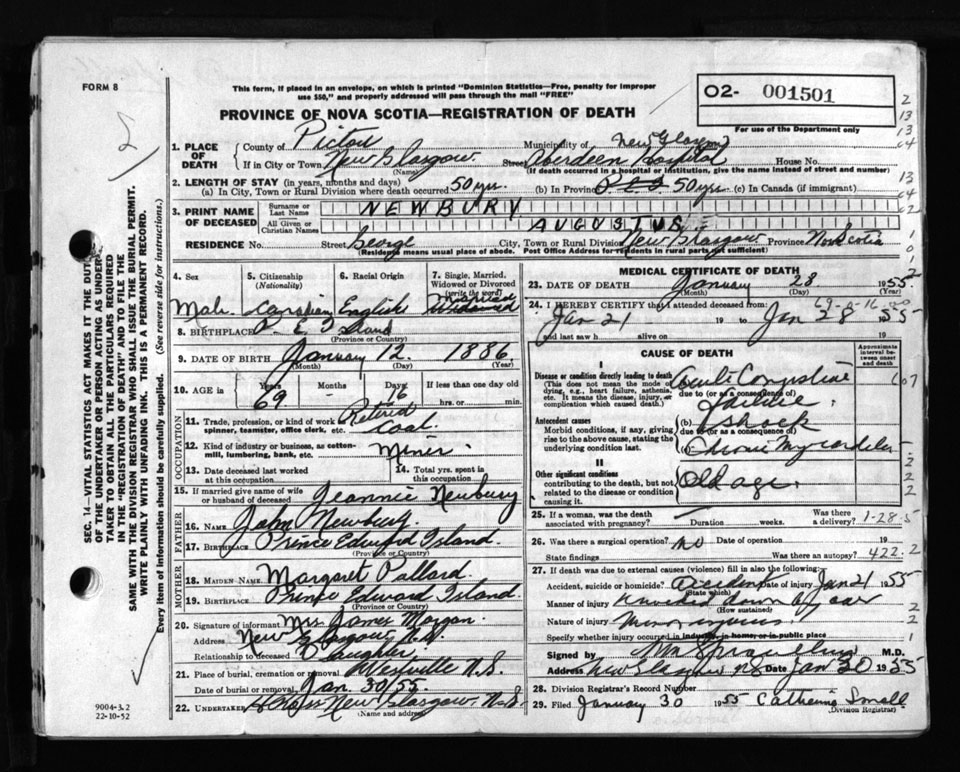 FORM 8
This form, if placed in an envelope, on which is printed "Dominion Statistics—Free, penalty for improper
use $50," and properly addressed will pass through the mail "FREE"
PROVINCE OF NOVA SCOTIA—REGISTRATION OF DEATH
O2- 001501
For use of the Department only
SEC. 14—VITAL STATISTICS ACT MAKES IT THE DUTY
OF THE UNDERTAKER OR PERSON ACTING AS UNDER-
TAKER TO OBTAIN ALL THE PARTICULARS REQUIRED
IN THE "REGISTRATION OF DEATH" AND TO FILE THE
SAME WITH THE DIVISION REGISTRAR WHO SHALL ISSUE THE BURIAL PERMIT.
WRITE PLAINLY WITH UNFADING INK. THIS IS A PERMANENT RECORD.
Every item of information should be carefully supplied. (See reverse side for instructions.)
1. PLACE OF DEATH
County of Pictou Municipality of New Glasgow
If in City or Town New Glasgow Street Aberdeen Hospital House No.
(Name) (If death occurred in a hospital or institution, give the name instead of street and number)
2. LENGTH OF STAY (in years, months and days)
(a) In City, Town or Rural Division where death occurred 50 yrs. (b) In Province 50 yrs. (c) In Canada (if immigrant)
3. PRINT NAME OF DECEASED
Surname or Last Name NEWBURY
All Given or Christian Names AUGUSTUS
RESIDENCE No. Street George City, Town or Rural Division New Glasgow Province Nova Scotia
(Residence means usual place of abode. Post Office Address for residents in rural parts not sufficient)
4. Sex
Male
5. Citizenship
(Nationality)
Canadian
6. Racial Origin
English
7. Single, Married, Widowed or Divorced
(write the word)
Married
Widowed
8. BIRTHPLACE P. E. Island
(Province or Country)
9. DATE OF BIRTH January 12 1886
(Month) (Day) (Year)
10. AGE in Years Months Days If less than one day old
69 - 16 hrs. or min.
OCCUPATION
11. Trade, profession, or kind of work as spinner, teamster, office clerk, etc. Retired
Coal
12. Kind of industry or business, as cotton-mill, lumbering, bank, etc. Miner
13. Date deceased last worked at this occupation
14. Total yrs. spent in this occupation
15. If married give name of wife or husband of deceased Jeannie Newbury
FATHER
16. NAME John Newbury
17. BIRTHPLACE Prince Edward Island.
(Province or Country)
MOTHER
18. MAIDEN NAME Margaret Pallard.
19. BIRTHPLACE Prince Edward Island.
(Province or Country)
20. Signature of informant Mrs James Morgan.
Address New Glasgow N.S.
Relationship to deceased Daughter
21. Place of burial, cremation or removal Westville N.S.
Date of burial or removal Jan. 30/55.
22. UNDERTAKER New Glasgow. N.S.
(Name and address)
9004-3.2
22-10-52
MEDICAL CERTIFICATE OF DEATH
23. DATE OF DEATH January 28 1955
(Month) (Day)
24. I HEREBY CERTIFY that I attended deceased from:
69-0-16
Jan 21 19 to Jan 28 1955
and last saw h alive on 19
CAUSE OF DEATH
Approximate interval between onset and death
I
Disease or condition directly leading to death
(This does not mean the mode of dying, e.g., heart failure, asthenia, etc. It means the disease, injury, or complication which caused death.)
(a) Acute Congestive
due to (or as a consequence of)
Failure.
Antecedent causes
Morbid conditions, if any, giving rise to the above cause, stating the underlying condition last.
(b) Shock
due to (or as a consequence of)
(c) Chronic
II
Other significant conditions
contributing to the death, but not related to the disease or condition causing it.
Old age.
25. If a woman, was the death associated with pregnancy? — Duration weeks. Was there a delivery?
1-28-5
26. Was there a surgical operation? no Date of operation 19
State findings Was there an autopsy?
422.2
27. If death was due to external causes (violence) fill in also the following:
Accident, suicide or homicide? Accident Date of injury Jan 21 1955
(State which)
Manner of injury Knocked down by car
(How sustained)
Nature of injury Minor injuries.
Specify whether injury occurred in industry, in home, or in public place
Signed by M.D.
Address New Glasgow NS Date Jan 30 1955
28. Division Registrar's Record Number
29. Filed January 30 1955 Catherine Small
(Division Registrar)